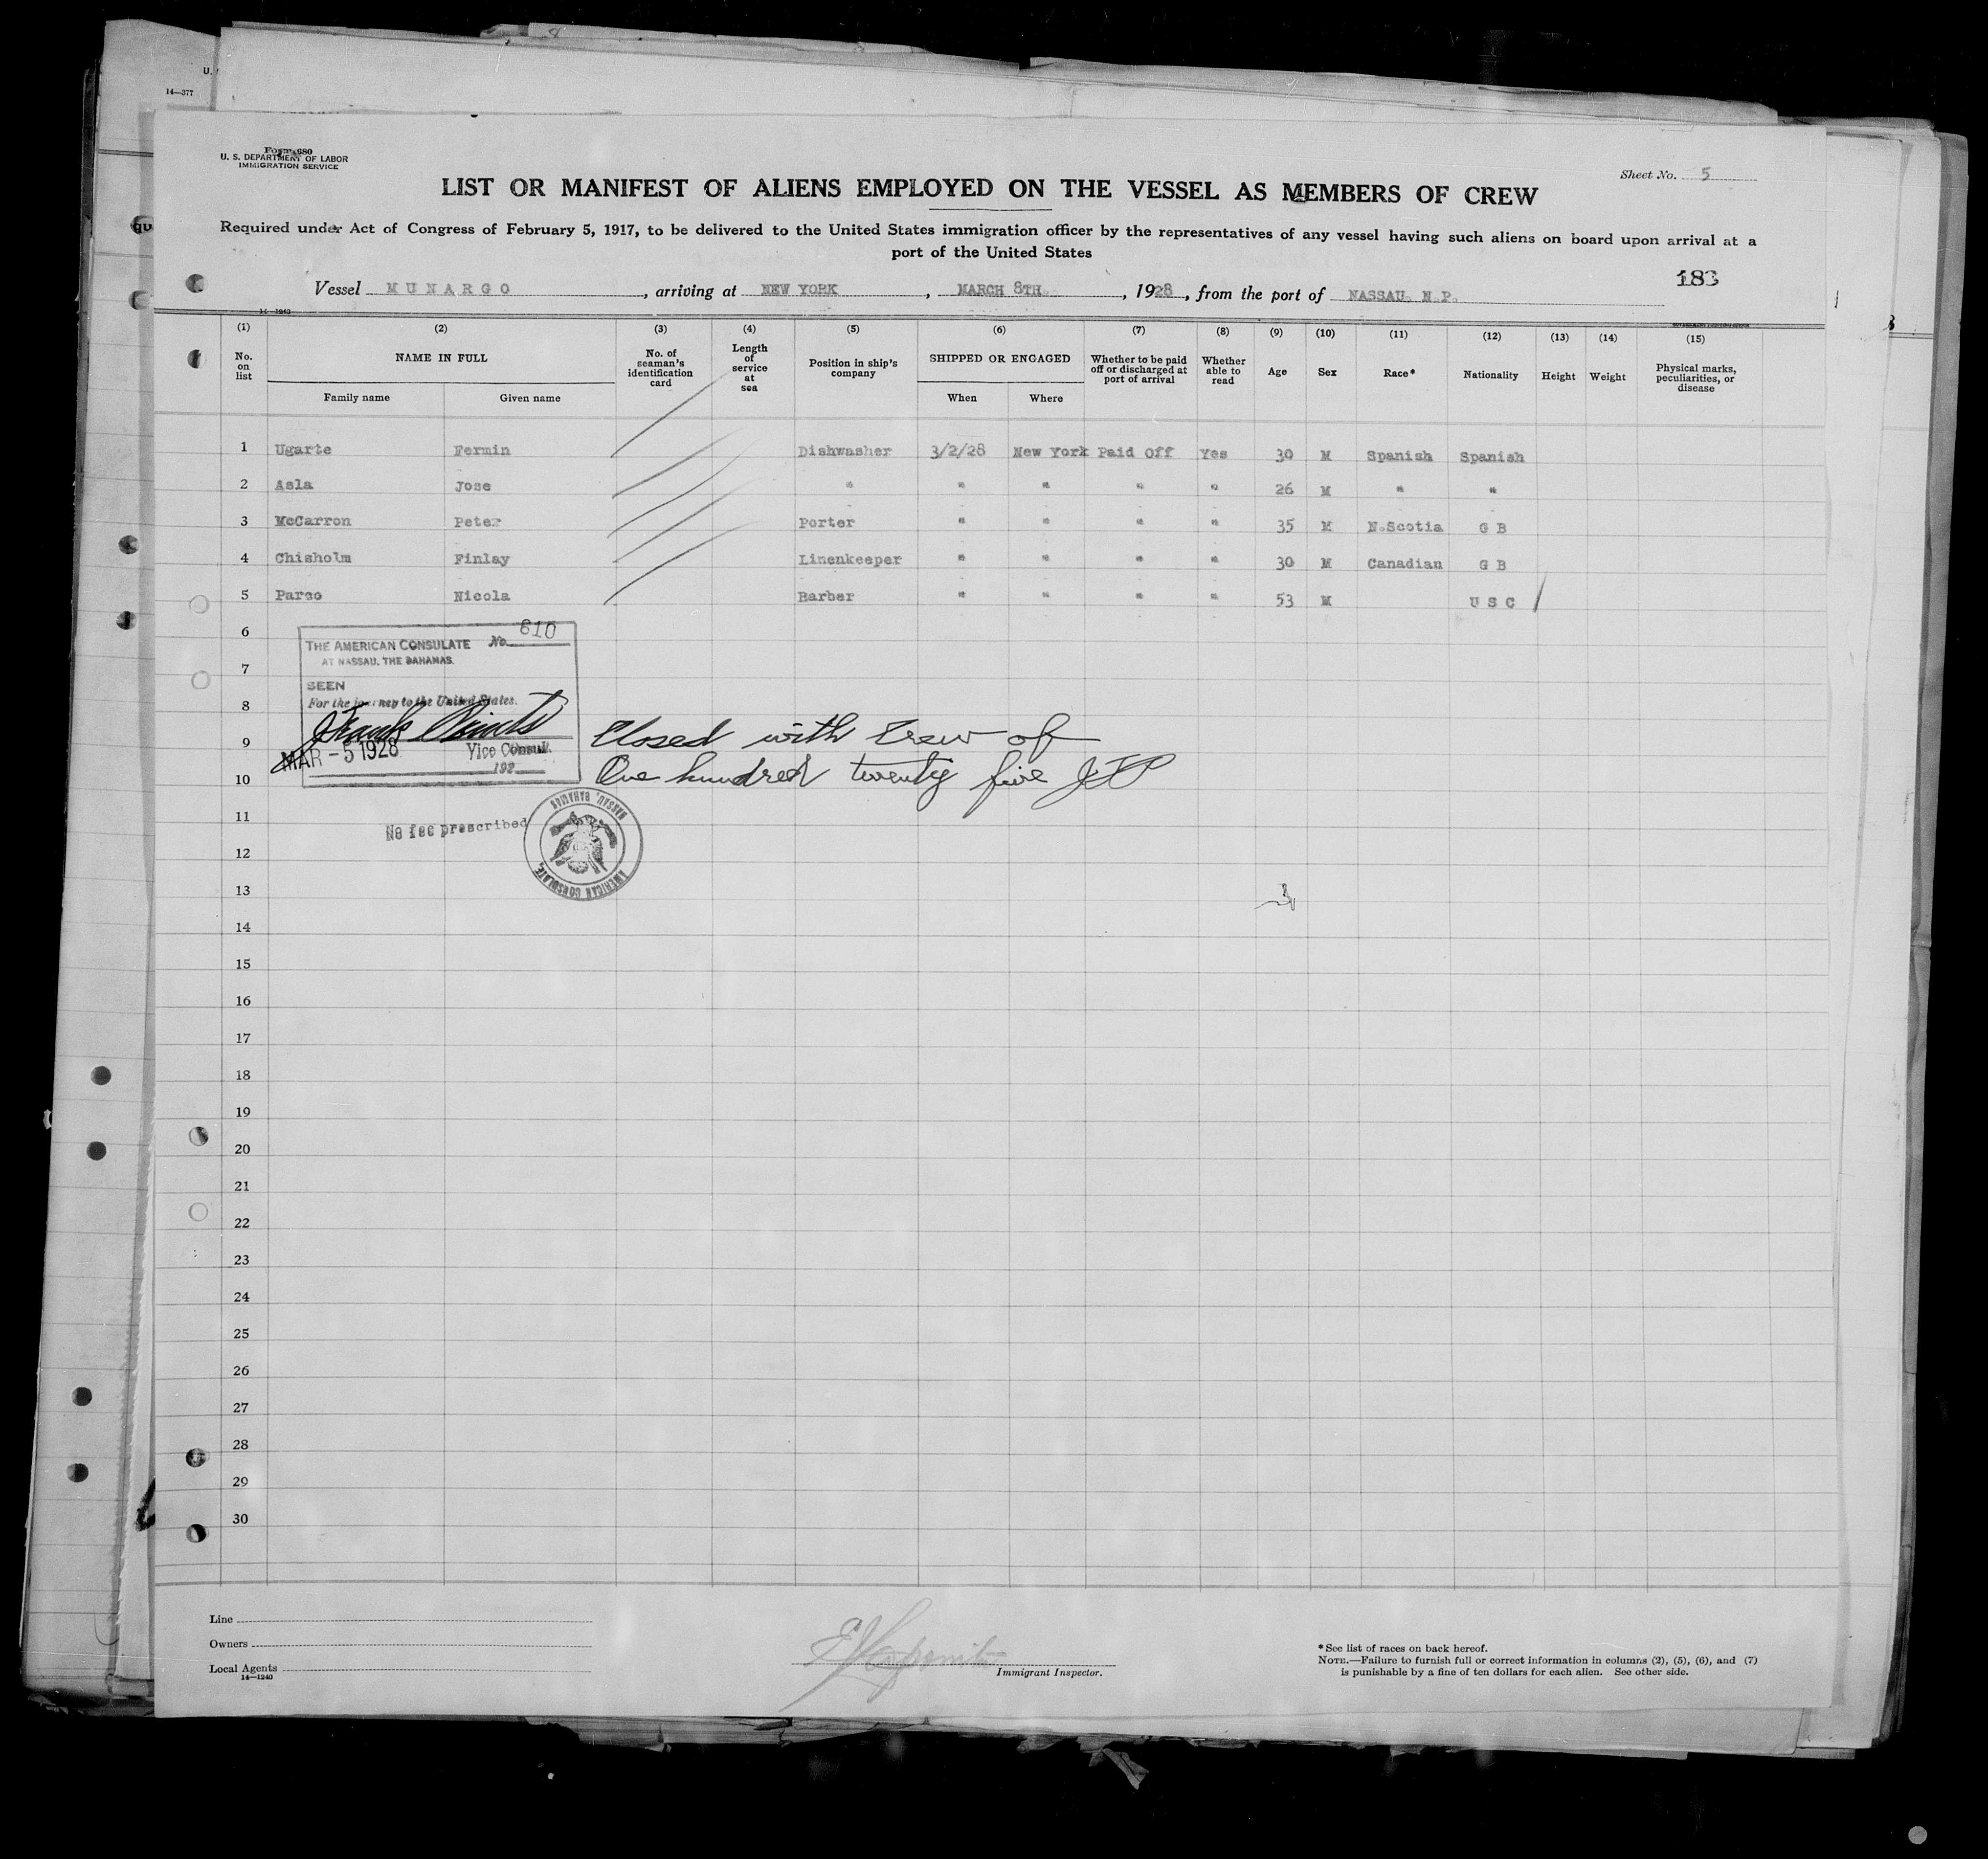 U.
14—377
Form 680
U. S. DEPARTMENT OF LABOR
IMMIGRATION SERVICE
Sheet No. 5
LIST OR MANIFEST OF ALIENS EMPLOYED ON THE VESSEL AS MEMBERS OF CREW
Required under Act of Congress of February 5, 1917, to be delivered to the United States immigration officer by the representatives of any vessel having such aliens on board upon arrival at a
port of the United States
183
Vessel MUNARGO, arriving at NEW YORK, MARCH 8TH., 1928, from the port of NASSAU. N.P.
(1) (2) (3) (4) (5) (6) (7) (8) (9) (10) (11) (12) (13) (14) (15)
No. on list NAME IN FULL No. of seaman's identification card Length of service at sea Position in ship's company SHIPPED OR ENGAGED Whether to be paid off or discharged at port of arrival Whether able to read Age Sex Race* Nationality Height Weight Physical marks, peculiarities, or disease
Family name Given name When Where
1 Ugarte Fermin Dishwasher 3/2/28 New York Paid Off Yes 30 M Spanish Spanish
2 Asla Jose " " " " " 26 M " "
3 McCarron Peter Porter " " " " 35 M N.Scotia G B
4 Chisholm Finlay Linenkeeper " " " " 30 M Canadian G B
5 Parso Nicola Barber " " " " 53 M U S C
6
THE AMERICAN CONSULATE No. 610
AT NASSAU, THE BAHAMAS.
7
SEEN
8
For the journey to the United States.
9
Closed with Crew of
MAR - 5 1928 Vice Consul.
192
10
One hundred twenty five
11
No fee prescribed
NASSAU, BAHAMAS
AMERICAN CONSULATE
12
13
14
15
16
17
18
19
20
21
22
23
24
25
26
27
28
29
30
Line
Owners
Local Agents
14—1240
Immigrant Inspector.
*See list of races on back hereof.
NOTE.—Failure to furnish full or correct information in columns (2), (5), (6), and (7)
is punishable by a fine of ten dollars for each alien. See other side.